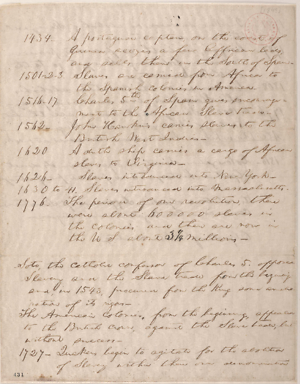 1434. A portuguese captain on the coast of
Guinea seizes a few African lads,
and sells them in the South of Spain
1501-2-3 Slaves are carried from Africa to
the Spanish Colonies in America
1516-17 Charles 5th of Spain gives encourage-
ment to the African Slave Trade
1562 John Hawkins carries slaves to the
West Indies
1620 A dutch ship carries a cargo of African
slaves to Virginia
1626 Slaves introduced into New York
1630 to 41. Slaves introduced into Massachusetts
1776 The period of our revolution there
were about 600 000 slaves in
the Colonies and there are now in
the U S about 3 1/4 millions
Note, the Catholic confessor of Charles 5, opposed
Slavery and the Slave trade from the begin
and in 1543, procures for the King some
of
The American Colonies, from the beginning, appeared
to the British Crown, against the Slave trade, but
without success
1727 Quakers begin to agitate for the abolition
of Slavery within their own